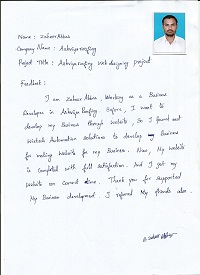 Name : Zaheer Abbas
Company Name : Ashviya Roofing
Project Title : Ashviya Roofing Web designing project
Feedback :
I am Zaheer Abbas, Working as a Business
Developer in Ashviya Roofing. Before, I want to
develop my Business through Website. So I found out
Automation solutions to develop my Business
for making Website for my business. Now, My website
is Completed with full satisfaction. And I got my
Website on Correct time. Thank you for supported
My Business development. I referred My friends also.